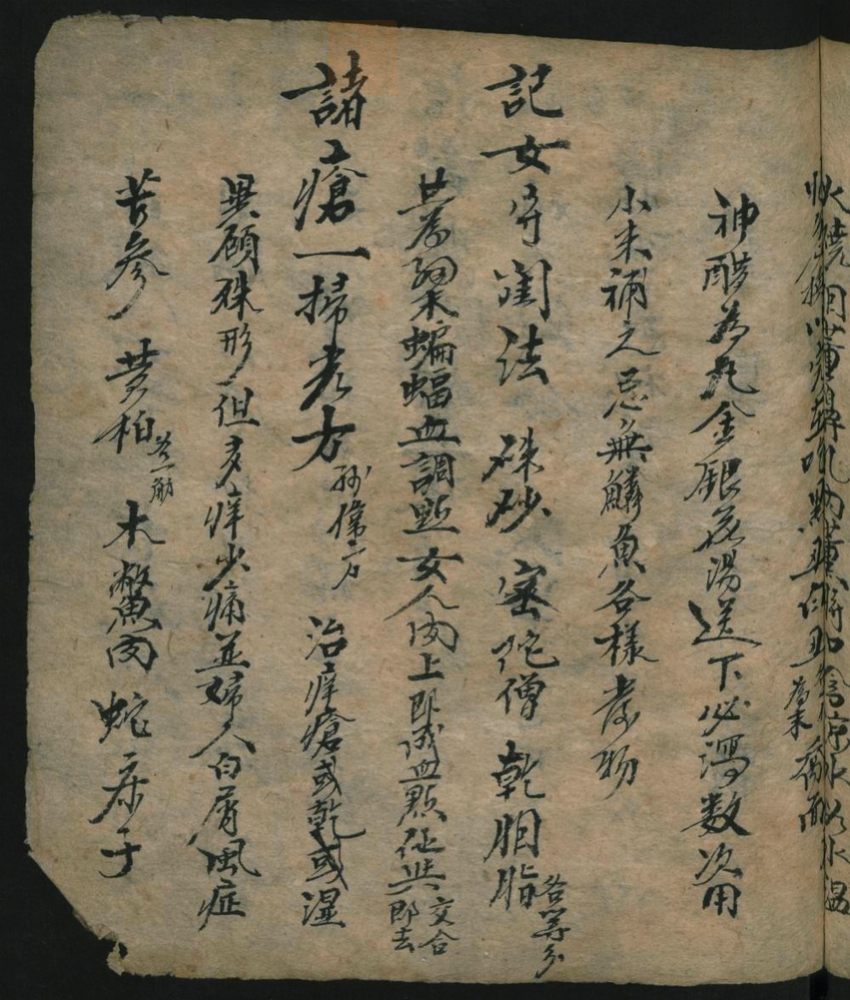 神醋為丸金銀花湯送下必瀉数次用
小米補之忌無鱗魚各樣發物
記女守閨法 硃砂 密陀僧 乾胭脂各等分
共為細末蝙蝠血調點女人肉上即成血點征與交合即去
諸瘡一掃光方 孫偉方 治痒瘡或乾或湿
異頑殊形但多痒少痛並婦人白屑風症
苦參 黄柏 各一觔 木鱉肉 蛇床子